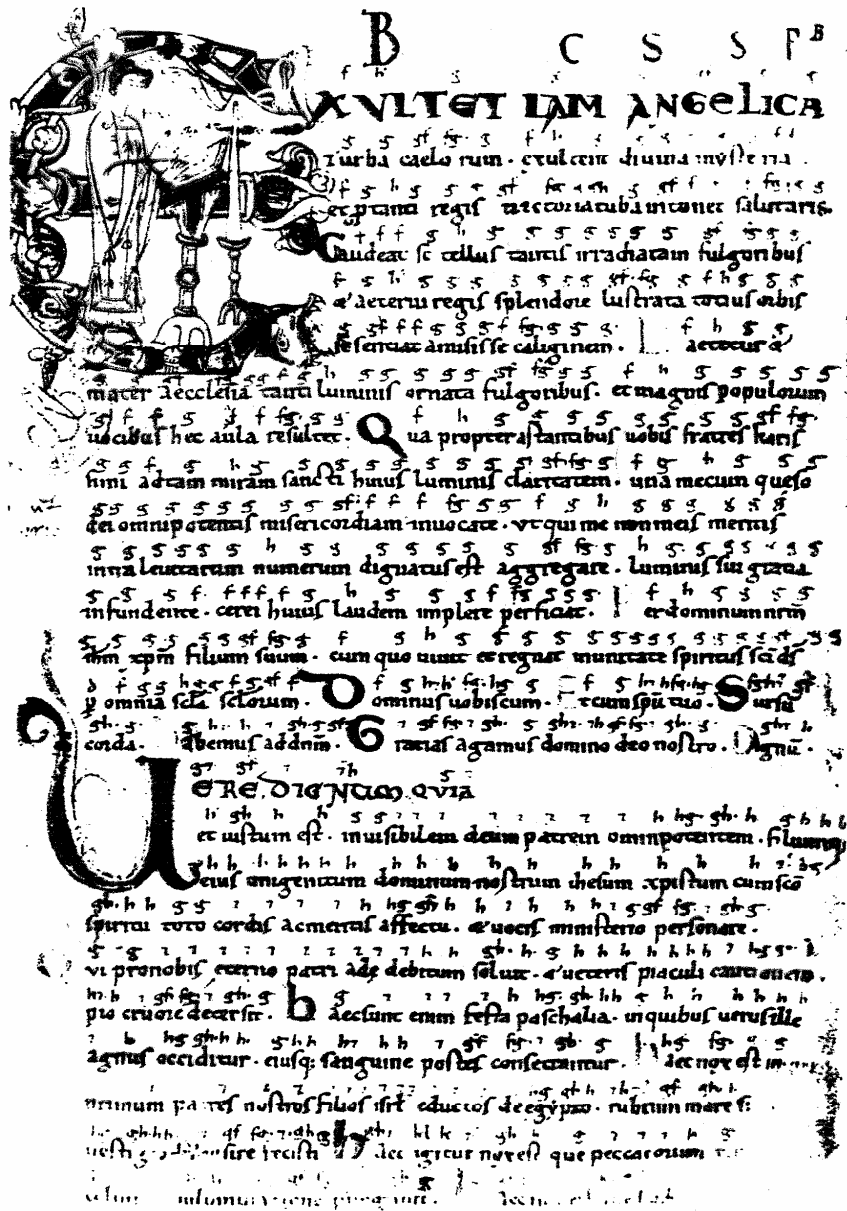 B C S S P B
EXULTET IAM ANGELICA
turba caelorum. exultent divina mysteria.
et ptanti regis victoria tuba intonet salutaris.
Gaudeat se tellus tantis irradiatam fulgoribus
& aeterni regis splendore lustrata totius orbis
se sentiat amisisse caliginem. Laetetur &
mater aecclesia tanti luminis ornata fulgoribus. et magnis populorum
uocibus hec aula resultet. Qua propter astantibus uobis fratres karis
simi ad tam miram sancti huius luminis claritatem. una mecum queso
dei omnipotentis misericordiam inuocate. ut qui me non meis meritis
intra leuitarum numerum dignatus est aggregare. luminis sui gratia
infundente. cerei huius laudem implere perficiat. Per dominum nrm
ihm xpm filium suum. cum quo uiuit et regnat in unitate spiritus sci ds
p omnia scla sclorum. Dominus uobiscum. Et cum spu tuo. Sursu
corda. Habemus ad dnm. Gratias agamus domino deo nostro. Dignu.
UERE DIGNUM QUIA
et iustum est. inuisibilem deum patrem omnipotentem. filiumq;
eius unigenitum dominum nostrum ihesum xpistum cum sco
spiritu toto cordis ac mentis affectu. & uocis ministerio personare.
Qui pro nobis eterno patri ade debitum soluit. & ueteris piaculi cautionem.
pio cruore detersit. Haec sunt enim festa paschalia. in quibus uerus ille
agnus occiditur. eiusq; sanguine postes consecrantur. Haec nox est in
primum patres nostros filios isrl eductos de egypto. rubrum mare
uestigio transire fecisti Haec igitur nox est que peccatorum